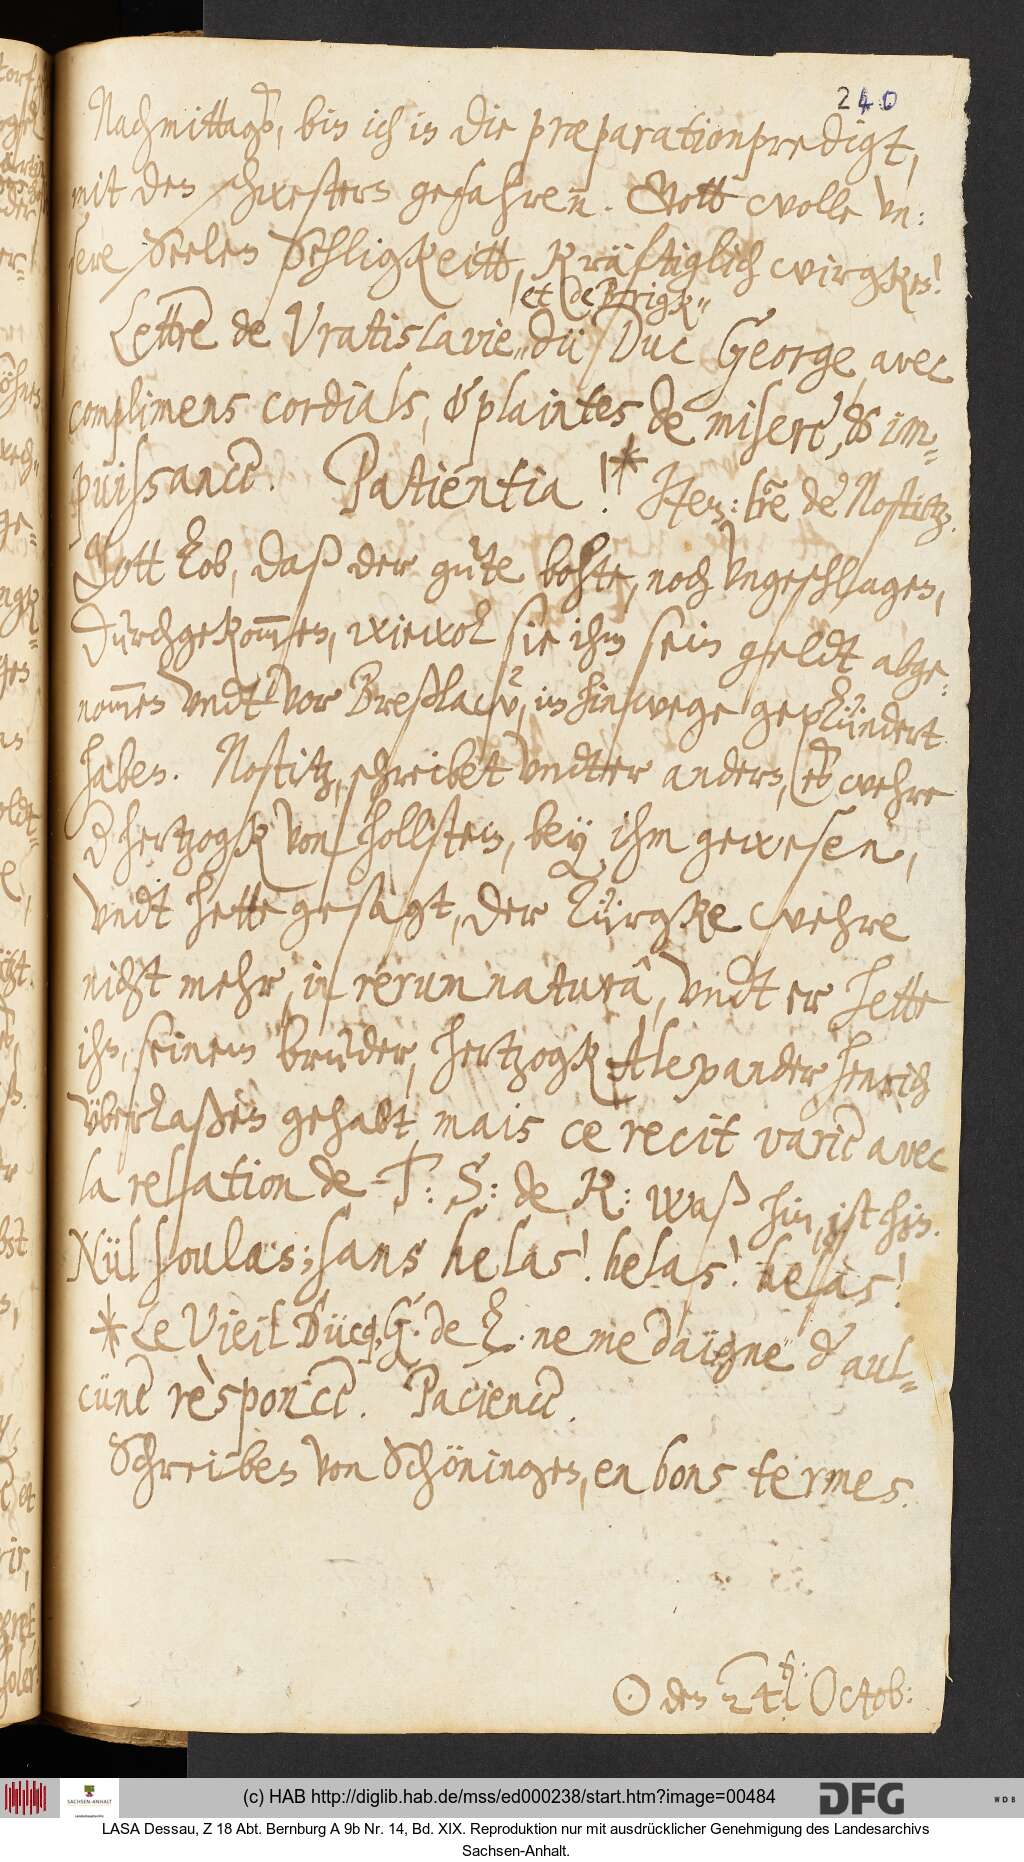 240
Nachmittagß, bin ich in die præparationpredigt,
mit den schwestern gefahren. Gott wolle vn:
sere Seelen Sehligkeitt, kräftiglich wirgken!
et de Brigk"
Lettre de Vratislavie" du Duc George, avec
complimens cordials, & plaintes de misere, & im-
puissance. Patientia! * Item: lre de Nostitz.
Gott lob, daß der gute bohte, noch vngeschlagen,
durchgekommen, wiewol sie ihm sein geldt abge-
nommen vndt vor Breßlaw, im hinwege geplündert
haben. Nostitz, schreibet vndter andern, eß wehre
d hertzogk von hollstein, bey ihm gewesen,
vndt hette gesagt, der Türgke wehre
nicht mehr, in rerum naturâ, vndt er hette
ihn, seinem bruder, hertzogk Alexander henrich
vberlaßen gehabt, mais ce recit varie avec
la relation de T: S: de R: waß hin, ist hin.
Nül soulas; sans helas! helas! helas!
* Le Vieil Ducq G. de L. ne me daigne d'aul-
cüne responce. Pacience.
Schreiben von Schöningen, en bons termes.
☉ den 24. Octob:
(c) HAB http://diglib.hab.de/mss/ed000238/start.htm?image=00484
SACHSEN-ANHALT
DFG
WDB
LASA Dessau, Z 18 Abt. Bernburg A 9b Nr. 14, Bd. XIX. Reproduktion nur mit ausdrücklicher Genehmigung des Landesarchivs
Sachsen-Anhalt.